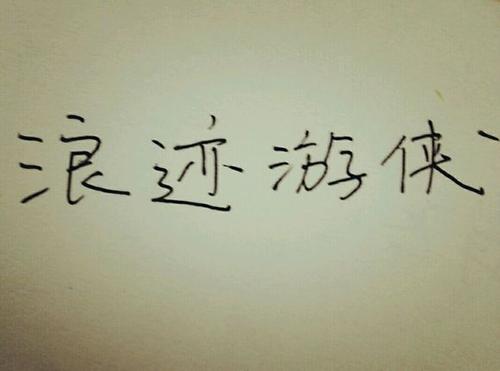 浪迹游侠